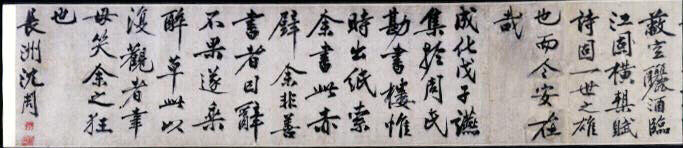 蔽空釃酒臨
江固橫槊賦
詩固一世之雄
也而今安在
哉
成化戊子讌
集於周氏
勘書樓惟
時出紙索
余書此赤
壁余非善
書者因辭
不果遂乘
醉草此以
復觀者幸
毋笑余之狂
也
長州沈周